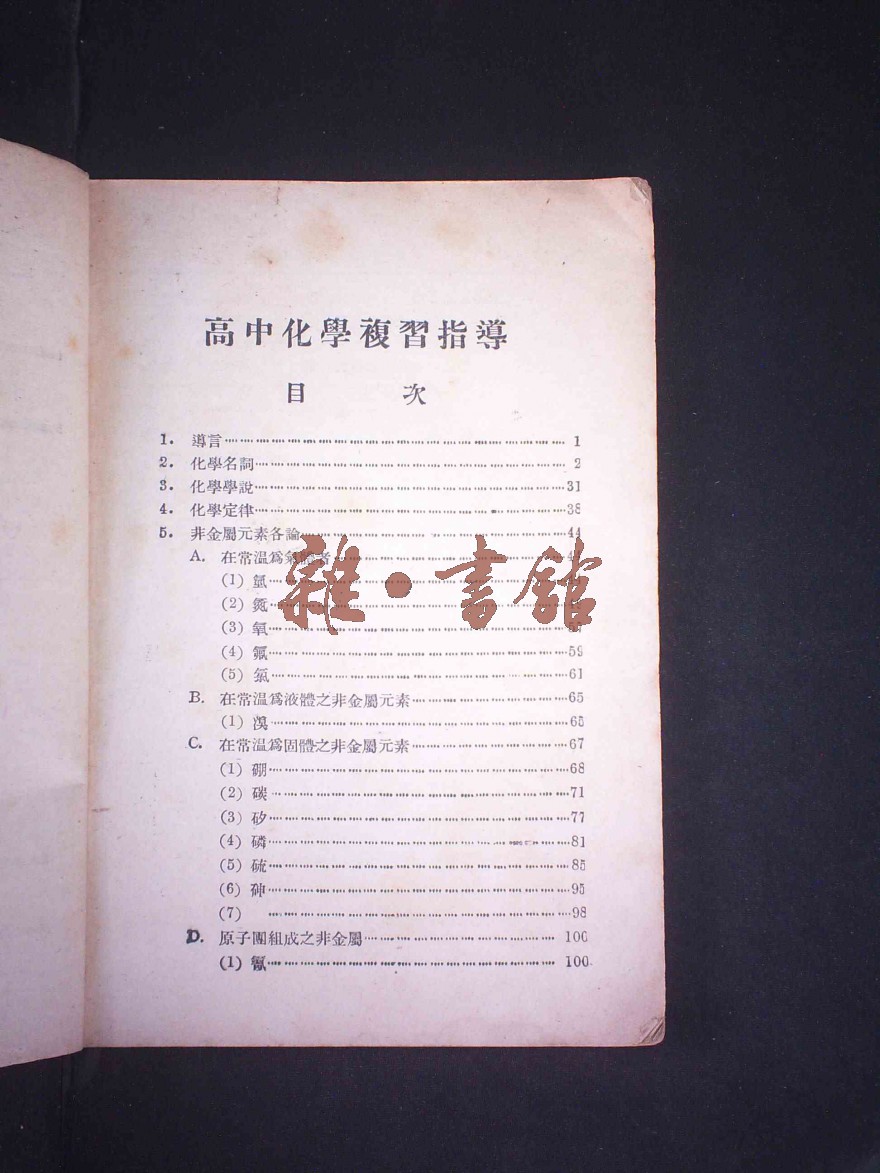 高中化學複習指導
目 次
1. 導言 1
2. 化學名詞 2
3. 化學學說 31
4. 化學定律 38
5. 非金屬元素各論 44
A. 在常温爲氣體者
(1) 氫
(2) 氮
(3) 氧
(4) 氟 59
(5) 氯 61
B. 在常温爲液體之非金屬元素 65
(1) 溴 65
C. 在常温爲固體之非金屬元素 67
(1) 硼 68
(2) 碳 71
(3) 矽 77
(4) 磷 81
(5) 硫 85
(6) 砷 95
(7) 98
D. 原子團組成之非金屬 100
(1) 氰 100
雜·書館